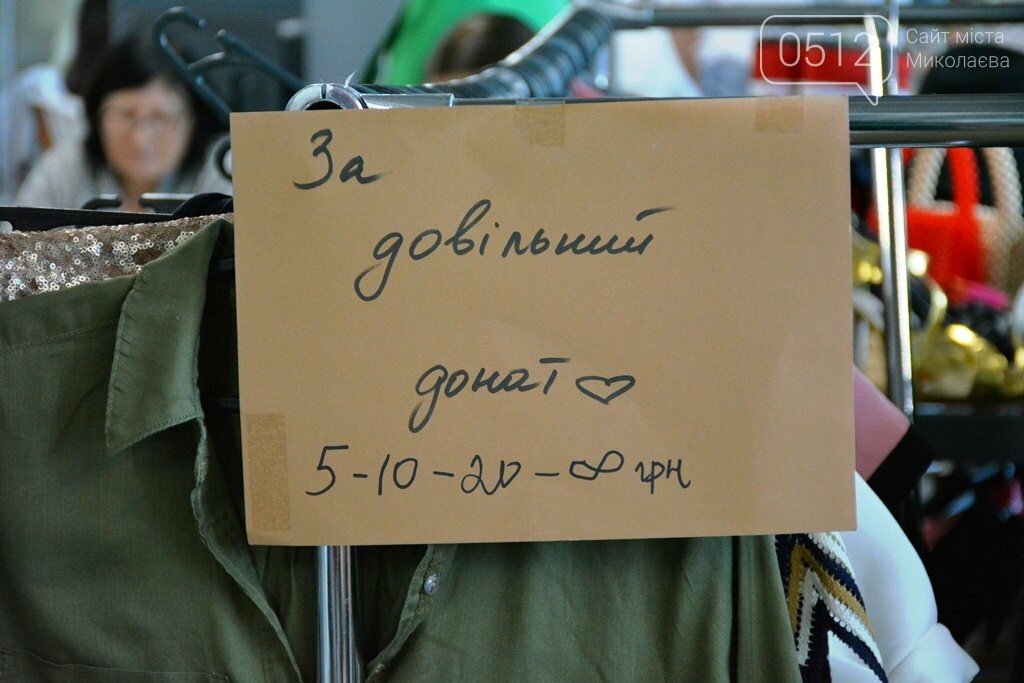 0512 Сайт міста
Миколаєва
За
довільний
донат ♡
5-10-20-∞ грн